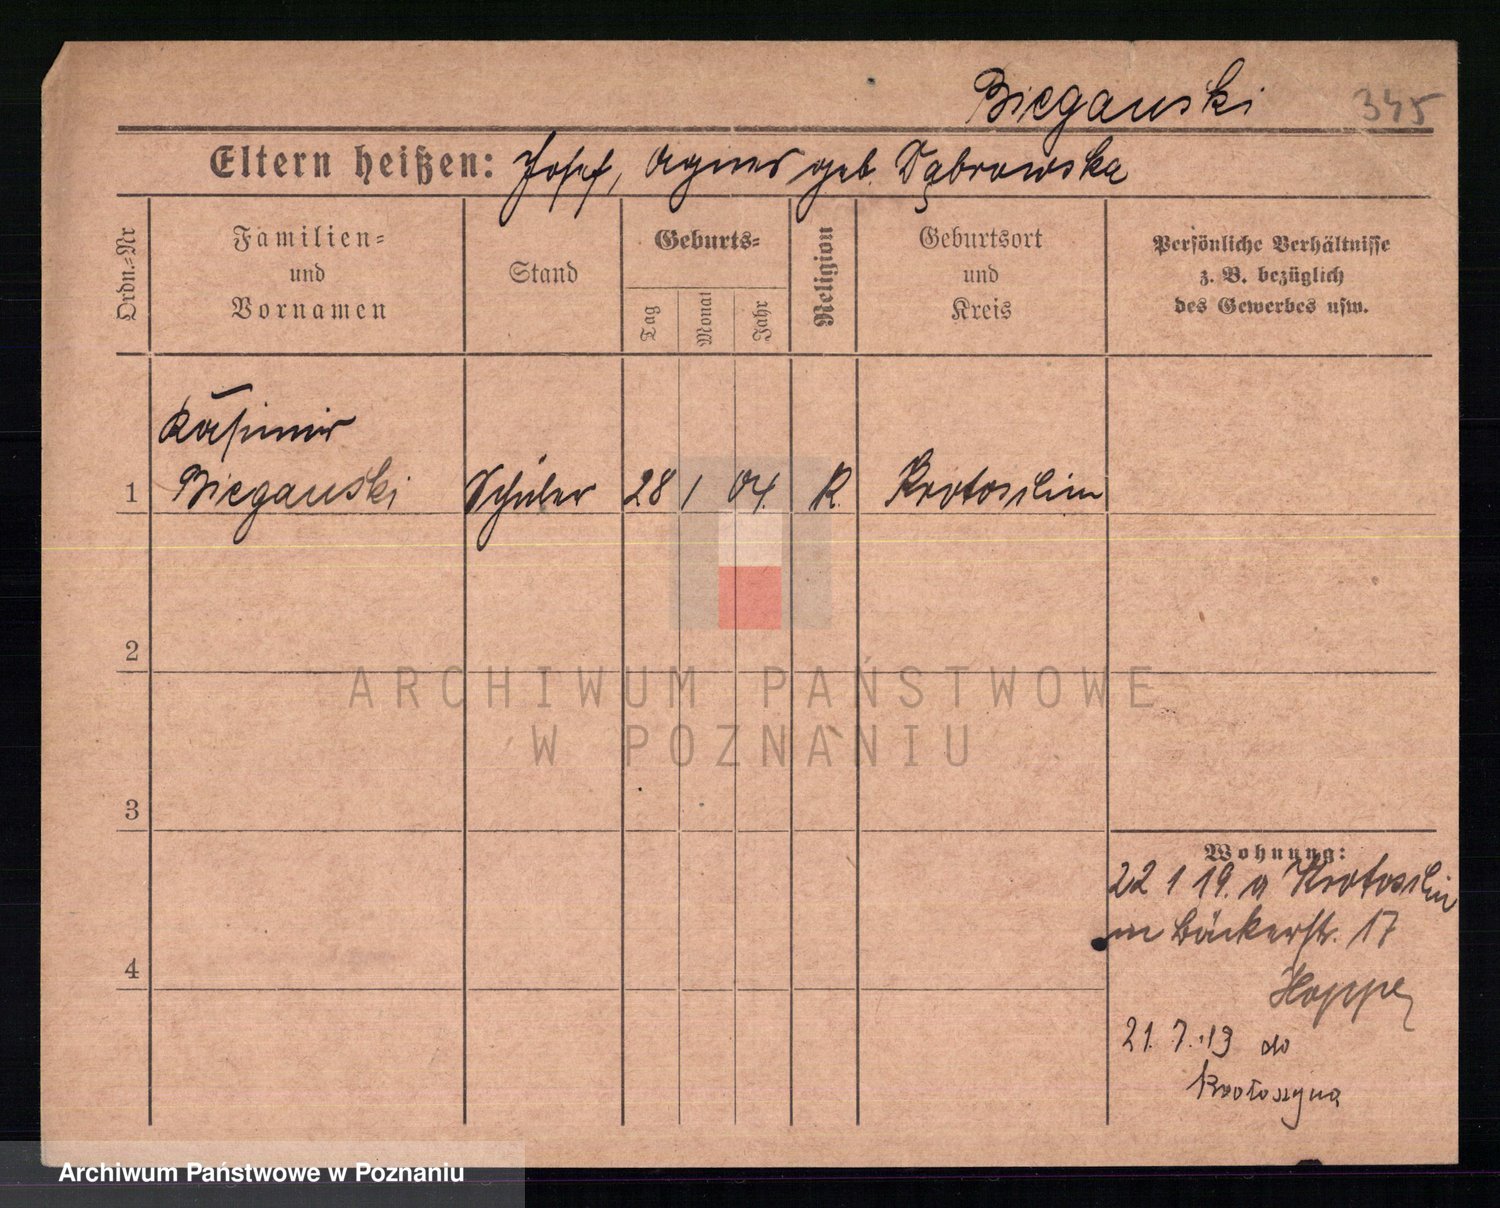 Bieganski 345
Eltern heißen: Josef, Agnes geb. Dąbrowska
Ordn.-Nr
Familien-
und
Vornamen
Stand
Geburts-
Tag
Monat
Jahr
Religion
Geburtsort
und
Kreis
Persönliche Verhältnisse
z. B. bezüglich
des Gewerbes usw.
Kasimir
1 Bieganski Schüler 28 1 04. R. Krotoschin
2
3
4
ARCHIWUM PAŃSTWOWE
W POZNANIU
Wohnung:
22 1 19. a Krotoschin
Bäckerstr. 17
Hoppe
21. 7. 19 do
Krotoszyna
Archiwum Państwowe w Poznaniu